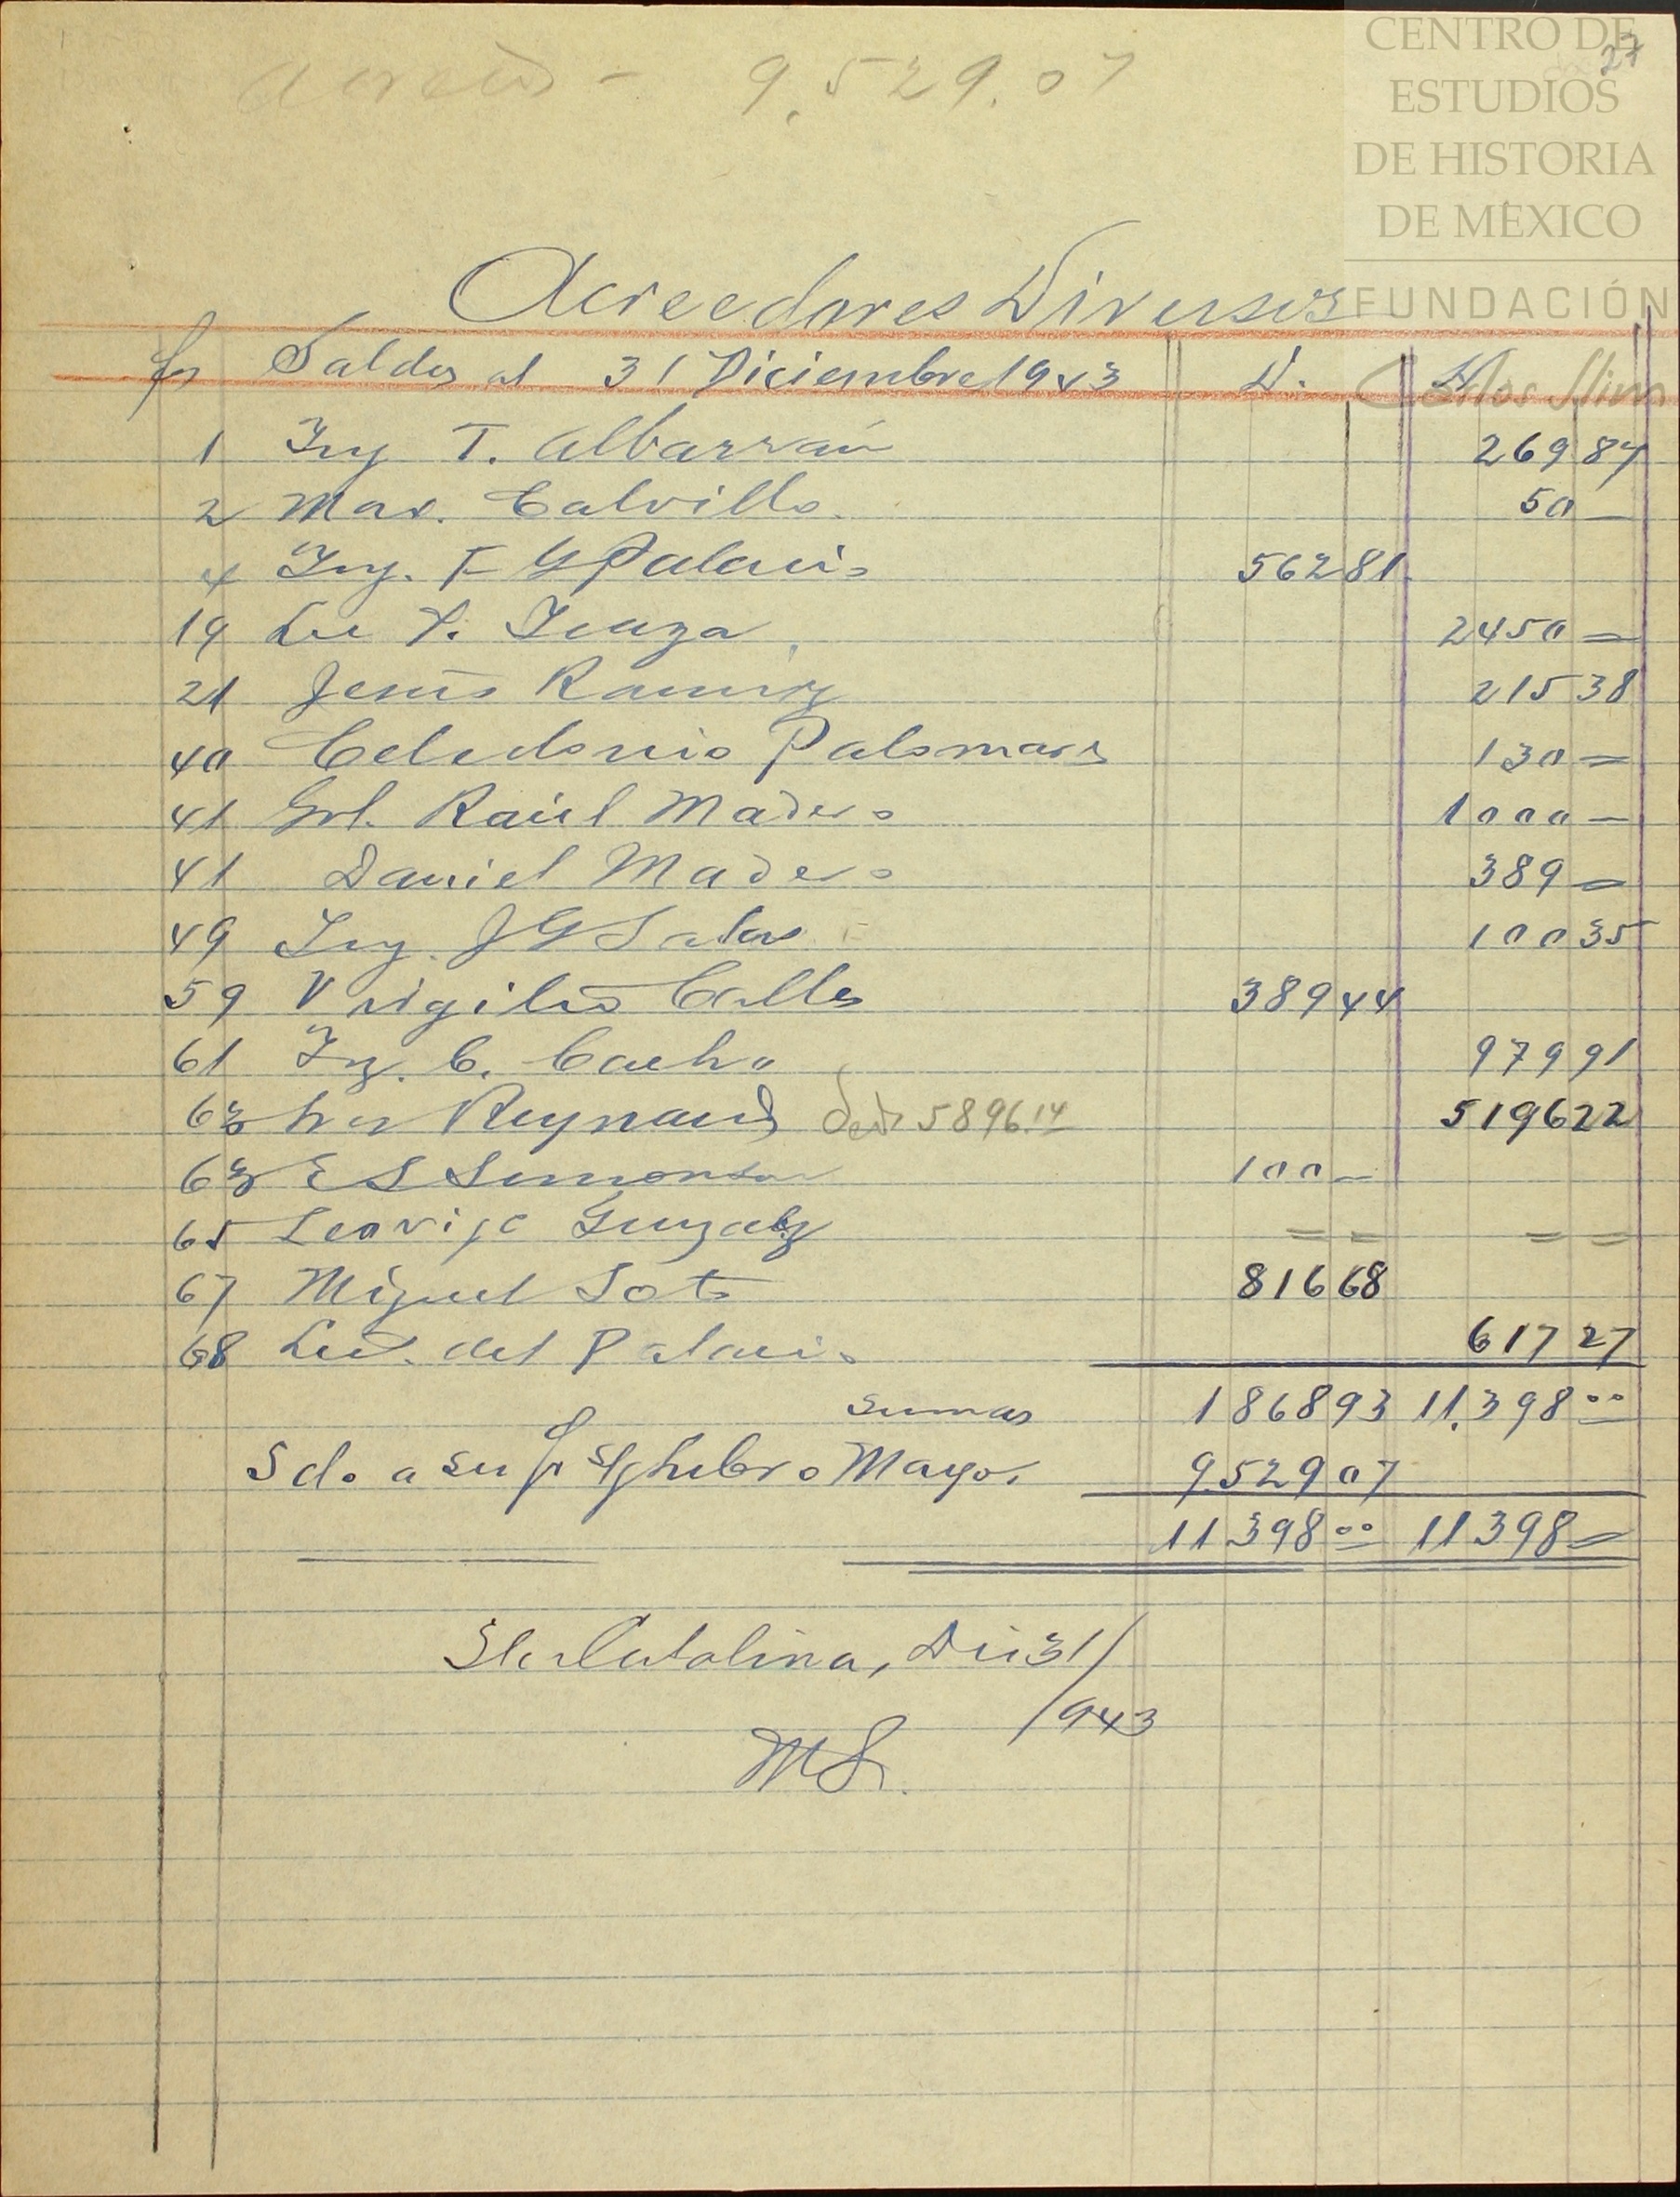 27
CENTRO DE
ESTUDIOS
DE HISTORIA
DE MÉXICO
FUNDACIÓN
Carlos Slim
9,529.07
Acreedores Diversos
fs Saldos al 31 Diciembre 1943 D. H.
1 Ing T. Albarrán 269 87
2 Mar. Calvillo. 50 —
4 Ing. F G Palacio 562 81
19 Lic 2450 =
21 Jesús Ramirez 215 38
40 Celedonio Palomares 130 =
41 Grl. Raúl Madero 1000 —
41 Daniel Madero 389 =
49 Ing. J G Salas 100 35
59 Virgilio Calles 389 44
61 Ing. C. 979 91
63 Reynaud 5896.14 5196 22
63 E S Simonson 100 —
65 Leovijo Gonzalez = = = =
67 Miguel Soto 816 68
68 Luis del Palacio 617 27
sumas 1868 93 11,398 00
Sdo a su fr S/g Libro Mayor 9529 07
11398 00 11398 =
Sta Catalina, Dic 31/
/943